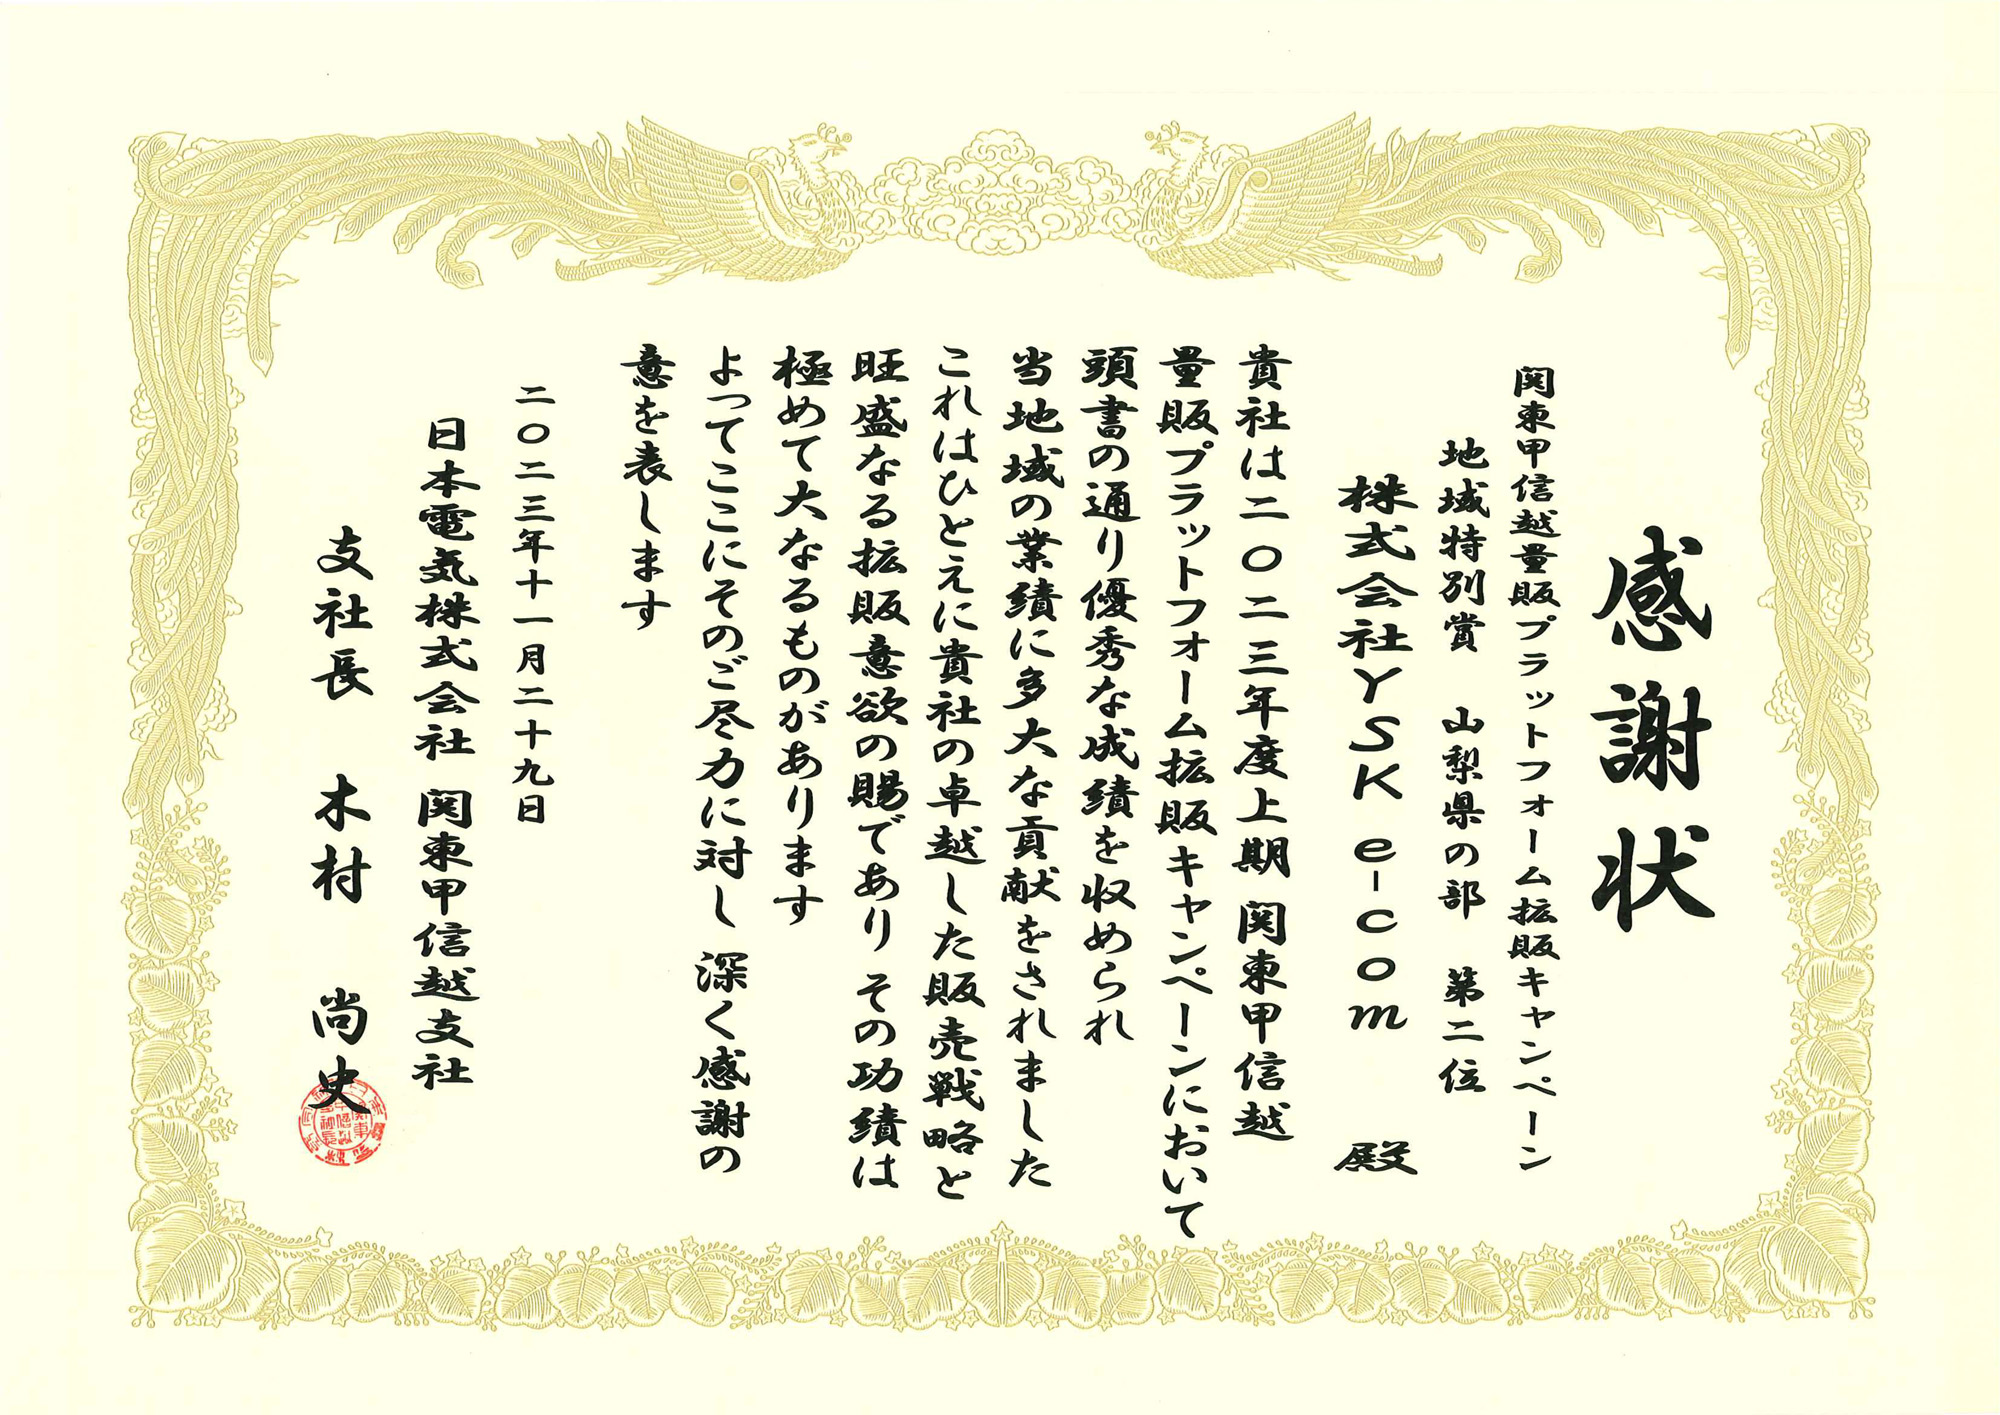 感謝状
関東甲信越量販プラットフォーム拡販キャンペーン
地域特別賞　山梨県の部　第二位
株式会社YSK e-com　殿
貴社は二〇二三年度上期 関東甲信越
量販プラットフォーム拡販キャンペーンにおいて
頭書の通り優秀な成績を収められ
当地域の業績に多大な貢献をされました
これはひとえに貴社の卓越した販売戦略と
旺盛なる拡販意欲の賜であり その功績は
極めて大なるものがあります
よってここにそのご尽力に対し 深く感謝の
意を表します
二〇二三年十一月二十九日
日本電気株式会社 関東甲信越支社
支社長　木村　尚史